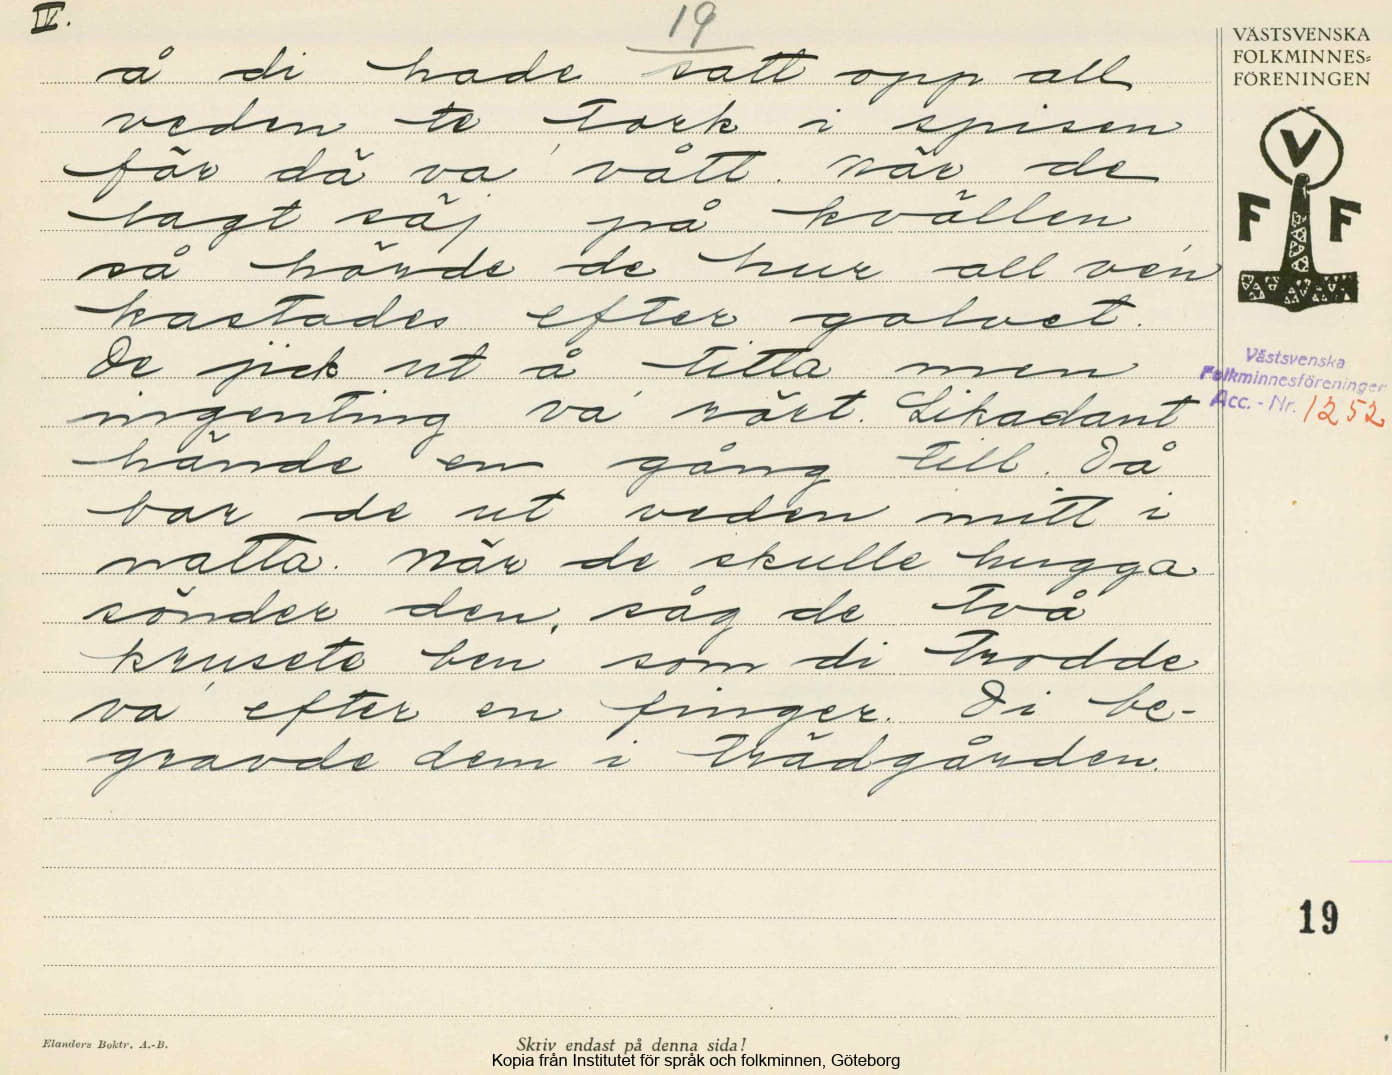 IV.
19
å di hade satt opp all
veden te tork i spisen
för dä va vått. När de
lagt säj på kvällen
så hörde de hur all ve'n
kastades efter golvet.
De jick ut å titta men
ingenting va' rört. Likadant
hände en gång till. Då
bar de ut veden mitt i
natta. När de skulle hugga
sönder den, såg de två
krusete ben som di trodde
va' efter en finger. Di be-
gravde dem i trädgården.
VÄSTSVENSKA
FOLKMINNES-
FÖRENINGEN
V
F F
Västsvenska
Folkminnesföreningen
Acc. - Nr. 1252
19
Elanders Boktr. A.-B.
Skriv endast på denna sida!
Kopia från Institutet för språk och folkminnen, Göteborg